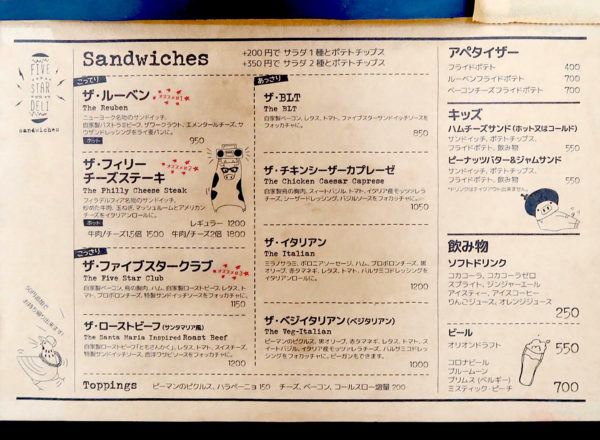 FIVE
STAR
DELI
sandwiches
50円追加で
お持ち帰り出来ます!
Sandwiches
+200円で サラダ1種とポテトチップス
+350円で サラダ2種とポテトチップス
こってり
ザ・ルーベン
オススメ#1
The Reuben
ニューヨーク名物のサンドイッチ。
自家製パストラミビーフ、ザワークラウト、エメンタールチーズ、サ
ウザンドレッシングをライ麦パンに。
ホット
950
ザ・フィリー
チーズステーキ
オススメ#2
The Philly Cheese Steak
フィラデルフィア名物のサンドイッチ。
炒めた牛肉、玉ねぎ、マッシュルームとアメリカン
チーズをイタリアンロールに。
ホット
レギュラー 1200
牛肉/チーズ1.5倍 1500 牛肉/チーズ2倍 1800
こっさり
ザ・ファイブスタークラブ
オススメ#3
The Five Star Club
自家製ベーコン、鳥の胸肉、ハム、自家製ローストビーフ、レタス、ト
マト、プロボロンチーズ、特製サンドイッチソースをフォカッチャに。
1150
ザ・ローストビーフ (サンタマリア風)
The Santa Maria Inspired Roast Beef
自家製ローストビーフ「ともさんかく」、レタス、トマト、スイスチーズ、
特製サンドイッチソース、西洋ワサビソースをフォカッチャに。
1200
あっさり
ザ・BLT
The BLT
自家製ベーコン、レタス、トマト、ファイブスターサンドイッチソースを
フォカッチャに。
850
ザ・チキンシーザーカプレーゼ
The Chicken Caesar Caprese
自家製鳥の胸肉、スィートバジル、トマト、イタリア産モッツァレラチ
ーズ、シーザードレッシング、バジルソースをフォカッチャに。
1050
ザ・イタリアン
The Italian
ミラノサラミ、ボロニアソーセージ、ハム、プロボロンチーズ、黒
オリーブ、赤タマネギ、レタス、トマト、バルサミコドレッシングを
イタリアンロールに。
1200
ザ・ベジイタリアン (ベジタリアン)
The Veg-Italian
ピーマンのピクルス、黒オリーブ、赤タマネギ、レタス、トマト、ス
イートバジル、イタリア産モッツァレラチーズ、バルサミコドレッシ
ングをフォカッチャに。ビーガンもできます。
1000
Toppings
ピーマンのピクルス、ハラペーニョ 150 チーズ、ベーコン、コールスロー増量 200
アペタイザー
フライドポテト 400
ルーベンフライドポテト 700
ベーコンチーズフライドポテト 700
キッズ
ハムチーズサンド (ホット又はコールド)
サンドイッチ、ポテトチップス、
フライドポテト、飲み物 550
ピーナッツバター&ジャムサンド
サンドイッチ、ポテトチップス、
フライドポテト、飲み物 550
*ドリンクはテイクアウト出来ません。
飲み物
ソフトドリンク
コカコーラ、コカコーラゼロ
スプライト、ジンジャーエール
アイスティー、アイスコーヒー
りんごジュース、オレンジジュース
250
ビール
オリオンドラフト 550
コロナビール
ブルームーン
プリムス (ベルギー)
ミスティック・ピーチ 700